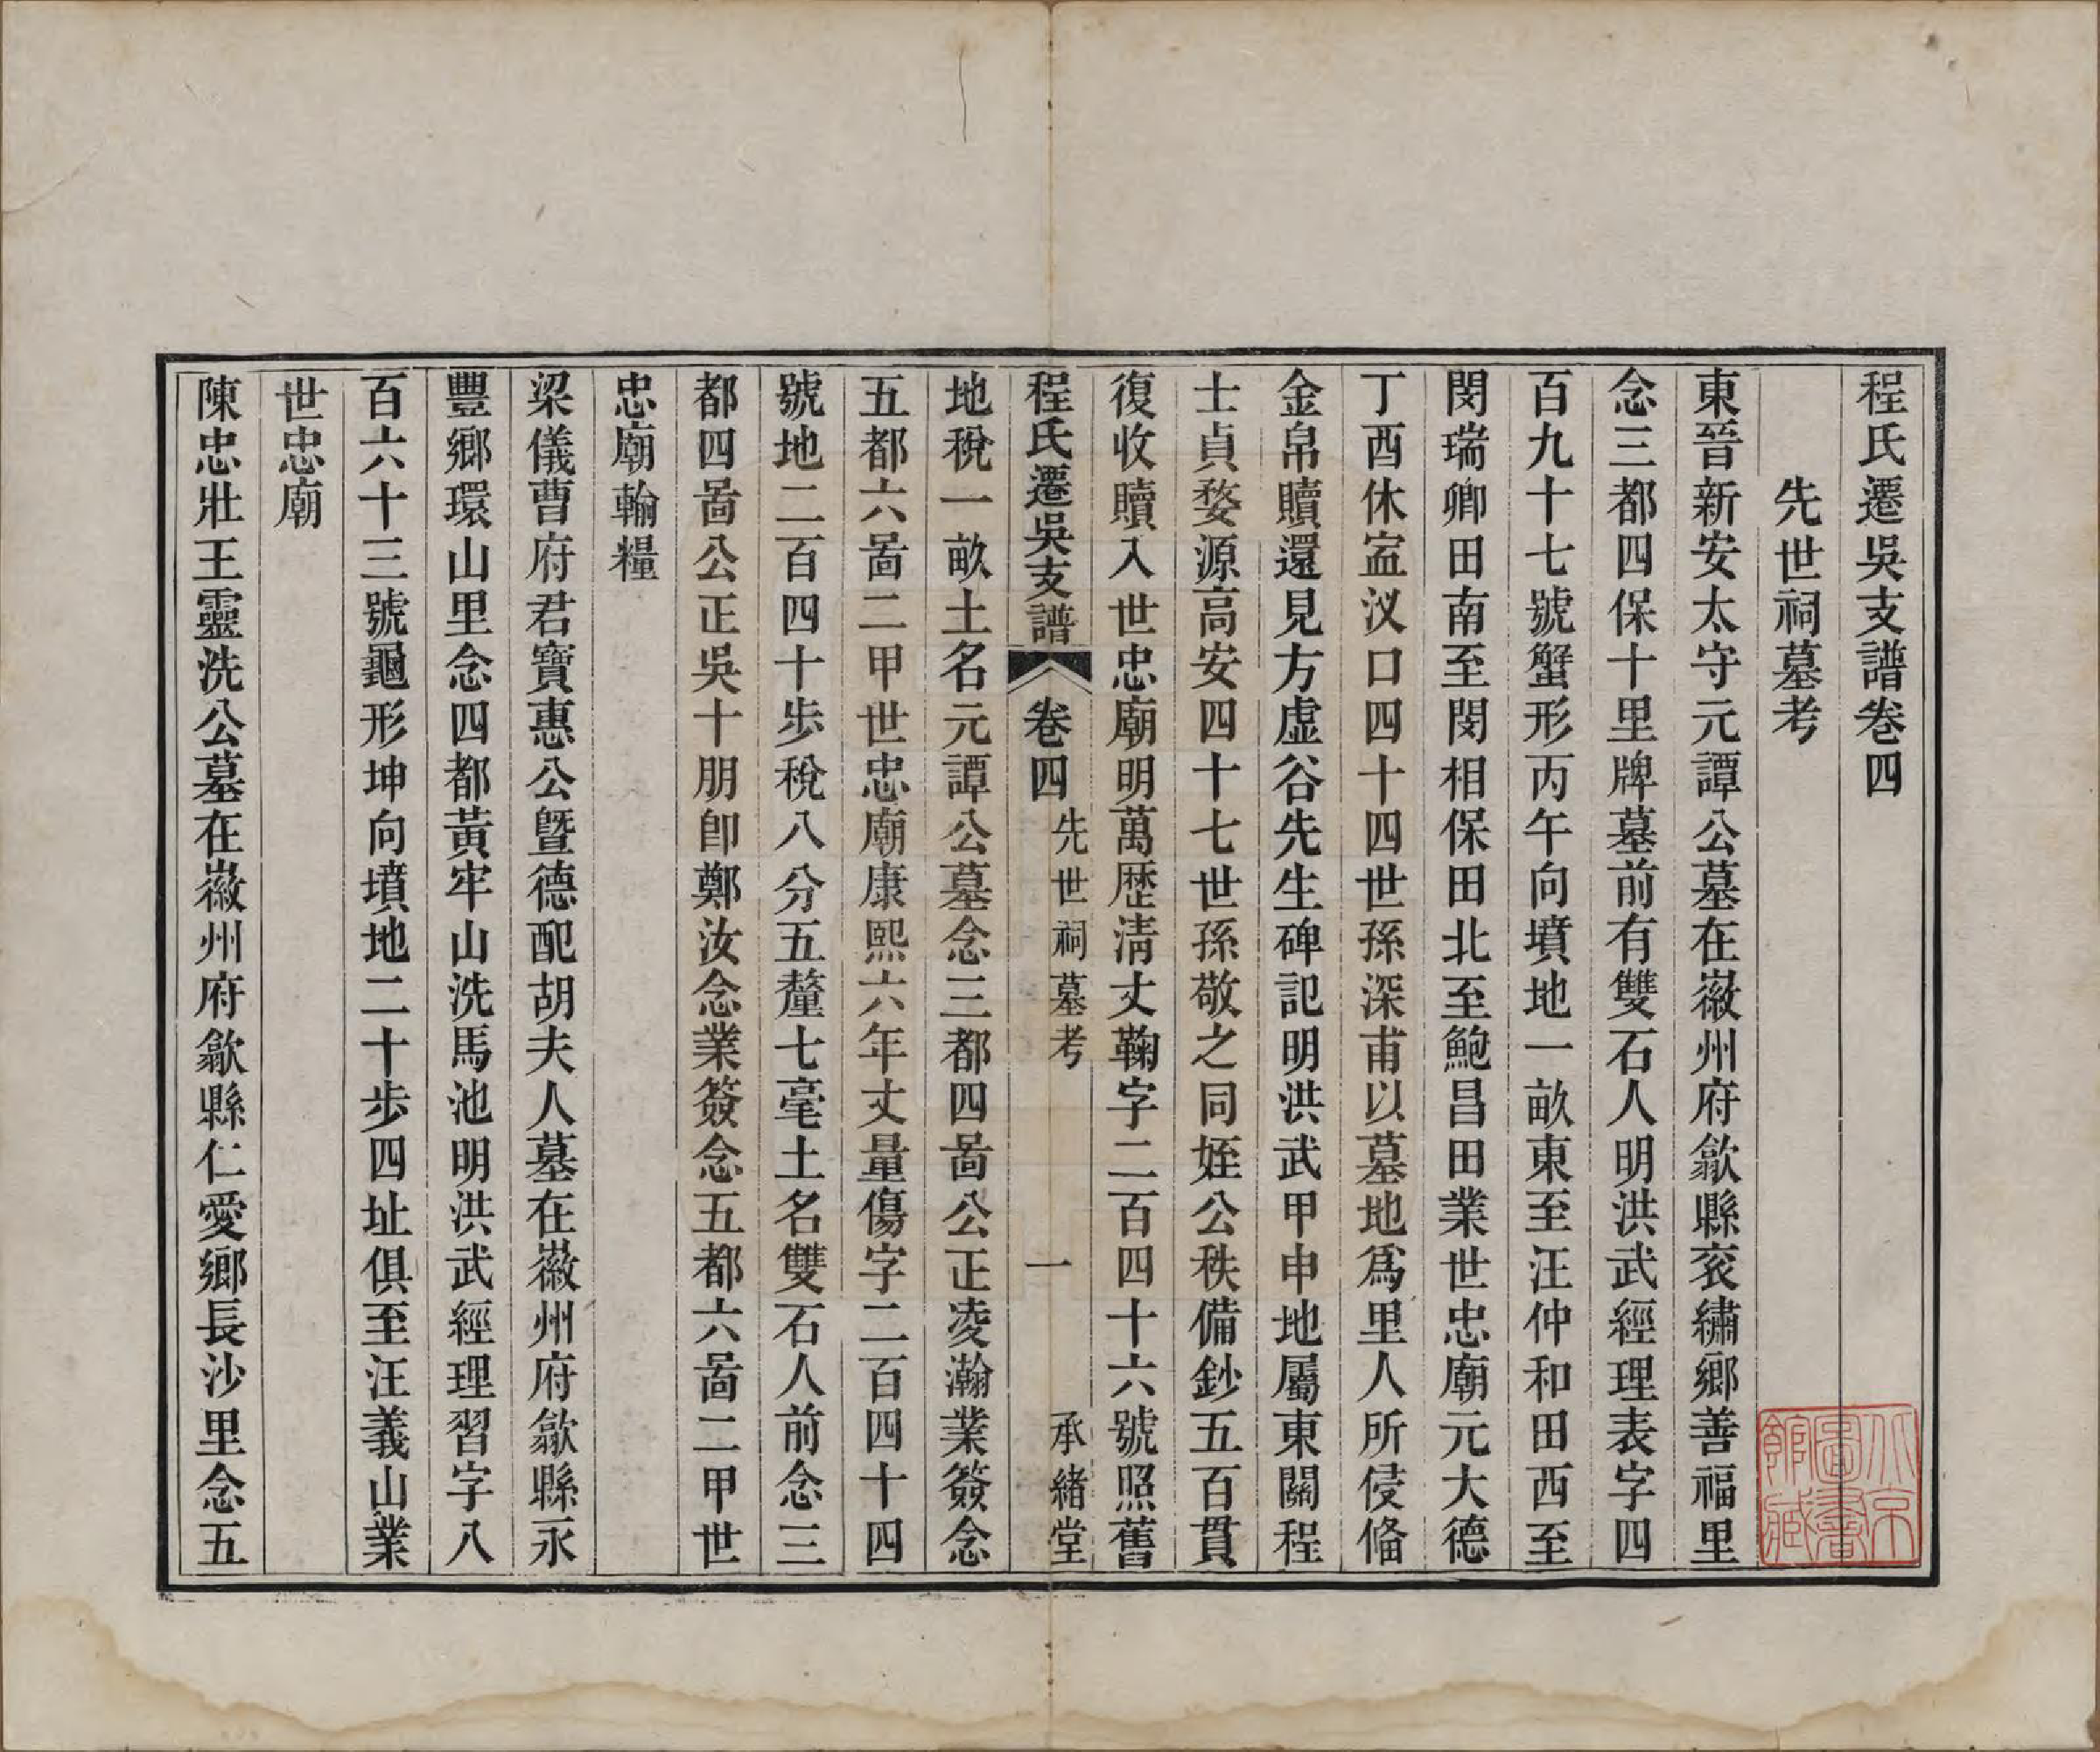 程氏遷吳支譜卷四
先世祠墓考
東晉新安太守元譚公墓在徽州府歙縣衮繡鄉善福里
念三都四保十里牌墓前有雙石人明洪武經理表字四
百九十七號蟹形丙午向墳地一畝東至汪仲和田西至
閔瑞卿田南至閔相保田北至鮑昌田業世忠廟元大德
丁酉休寍汊口四十四世孫深甫以墓地爲里人所侵俻
金帛贖還見方虛谷先生碑記明洪武甲申地屬東關程
士貞婺源高安四十七世孫敬之同姪公秩備鈔五百貫
復收贖入世忠廟明萬歷清丈鞠字二百四十六號照舊
程氏遷吳支譜 卷四 先世祠墓考 一 承緒堂
地稅一畝土名元譚公墓念三都四啚公正凌瀚業簽念
五都六啚二甲世忠廟康熙六年丈量傷字二百四十四
號地二百四十步稅八分五釐七毫土名雙石人前念三
都四啚公正吳十朋卽鄭汝念業簽念五都六啚二甲世
忠廟輸糧
梁儀曹府君寶惠公曁德配胡夫人墓在徽州府歙縣永
豐鄉環山里念四都黃牢山洗馬池明洪武經理習字八
百六十三號龜形坤向墳地二十步四址俱至汪義山業
世忠廟
陳忠壯王靈洗公墓在徽州府歙縣仁愛鄉長沙里念五
北京圖書館藏